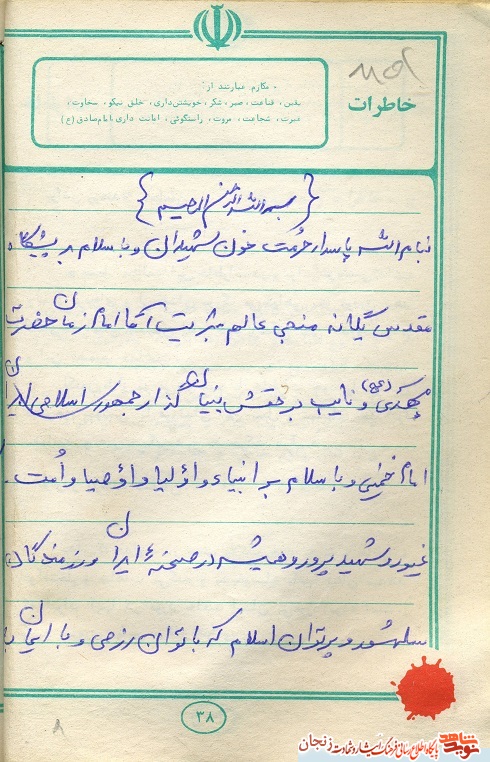 خاطرات
• مکارم عبارتند از:
یقین، قناعت، صبر، شکر، خویشتن‌داری، خلق نیکو، سخاوت،
غیرت، شجاعت، مروت، راستگوئی، امانت داری. امام صادق (ع)
{بسم الله الرحمن الرحیم}
بنام الله پاسدار حرمت خون شهیدان و با سلام بر پیشگاه
مقدس یگانه منجی عالم بشریت آقا امام زمان حضرت
مهدی (عج) و نایب برحقش بنیان گذار جمهوری اسلامی ایران
امام خمینی و با سلام بر انبیاء و اولیا و اوصیا و اُمت
غیور و شهید پرور و همیشه در صحنهٔ ایران و رزمندگان
سلهشور و پرتوان اسلام که با توان رزمی و با ایمان با
۳۸
۸
نوید شاهد
پایگاه اطلاع رسانی فرهنگ ایثار و شهادت زنجان